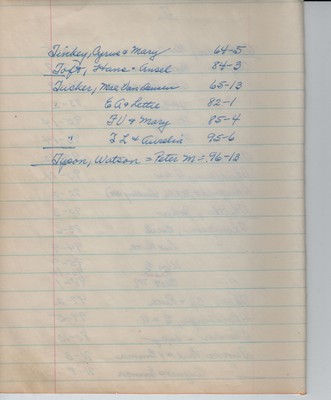 Tinkey, Cyrus & Mary 64-5
Toft, Hans & Ansel 84-3
Tucker, Mae Van Deusen 65-13
E A & Lettie 82-1
F V & Mary 85-4
" F L & Aurelia 95-6
Tyson, Watson = Peter M = 96-13